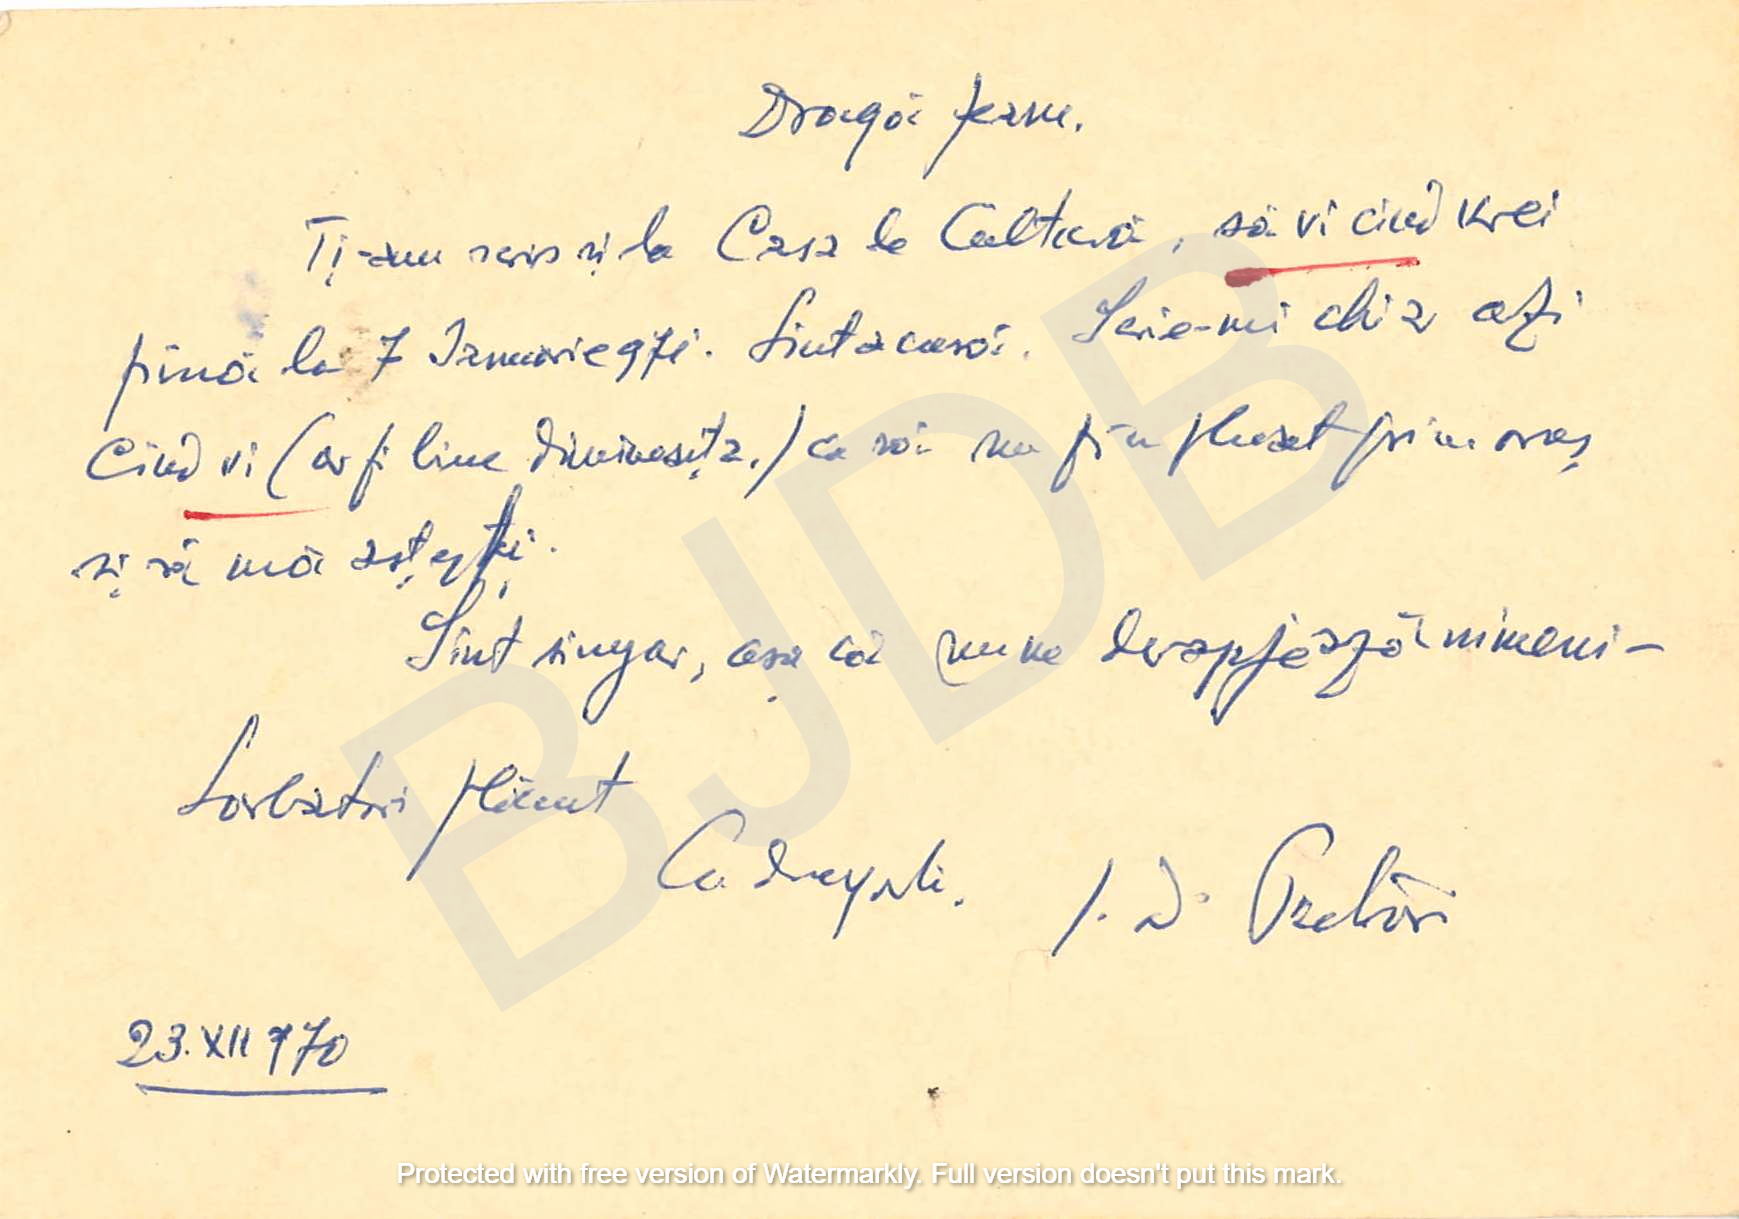 Dragă Jeane.
Ți-am scris și la Casa de Cultură, să vi cînd vrei
pînă la 7 Ianuarie 971. Sînt acasă. Scrie-mi chiar azi
cînd vi (ar fi bine dimineața.) ca să nu fiu plecat prin oraș
și să mă aștepți.
Sînt singur, așa că nu ne deranjează nimeni-
Sărbători plăcut
Cu dragoste.
I. D.
23.XII 970
BJDB
Protected with free version of Watermarkly. Full version doesn't put this mark.